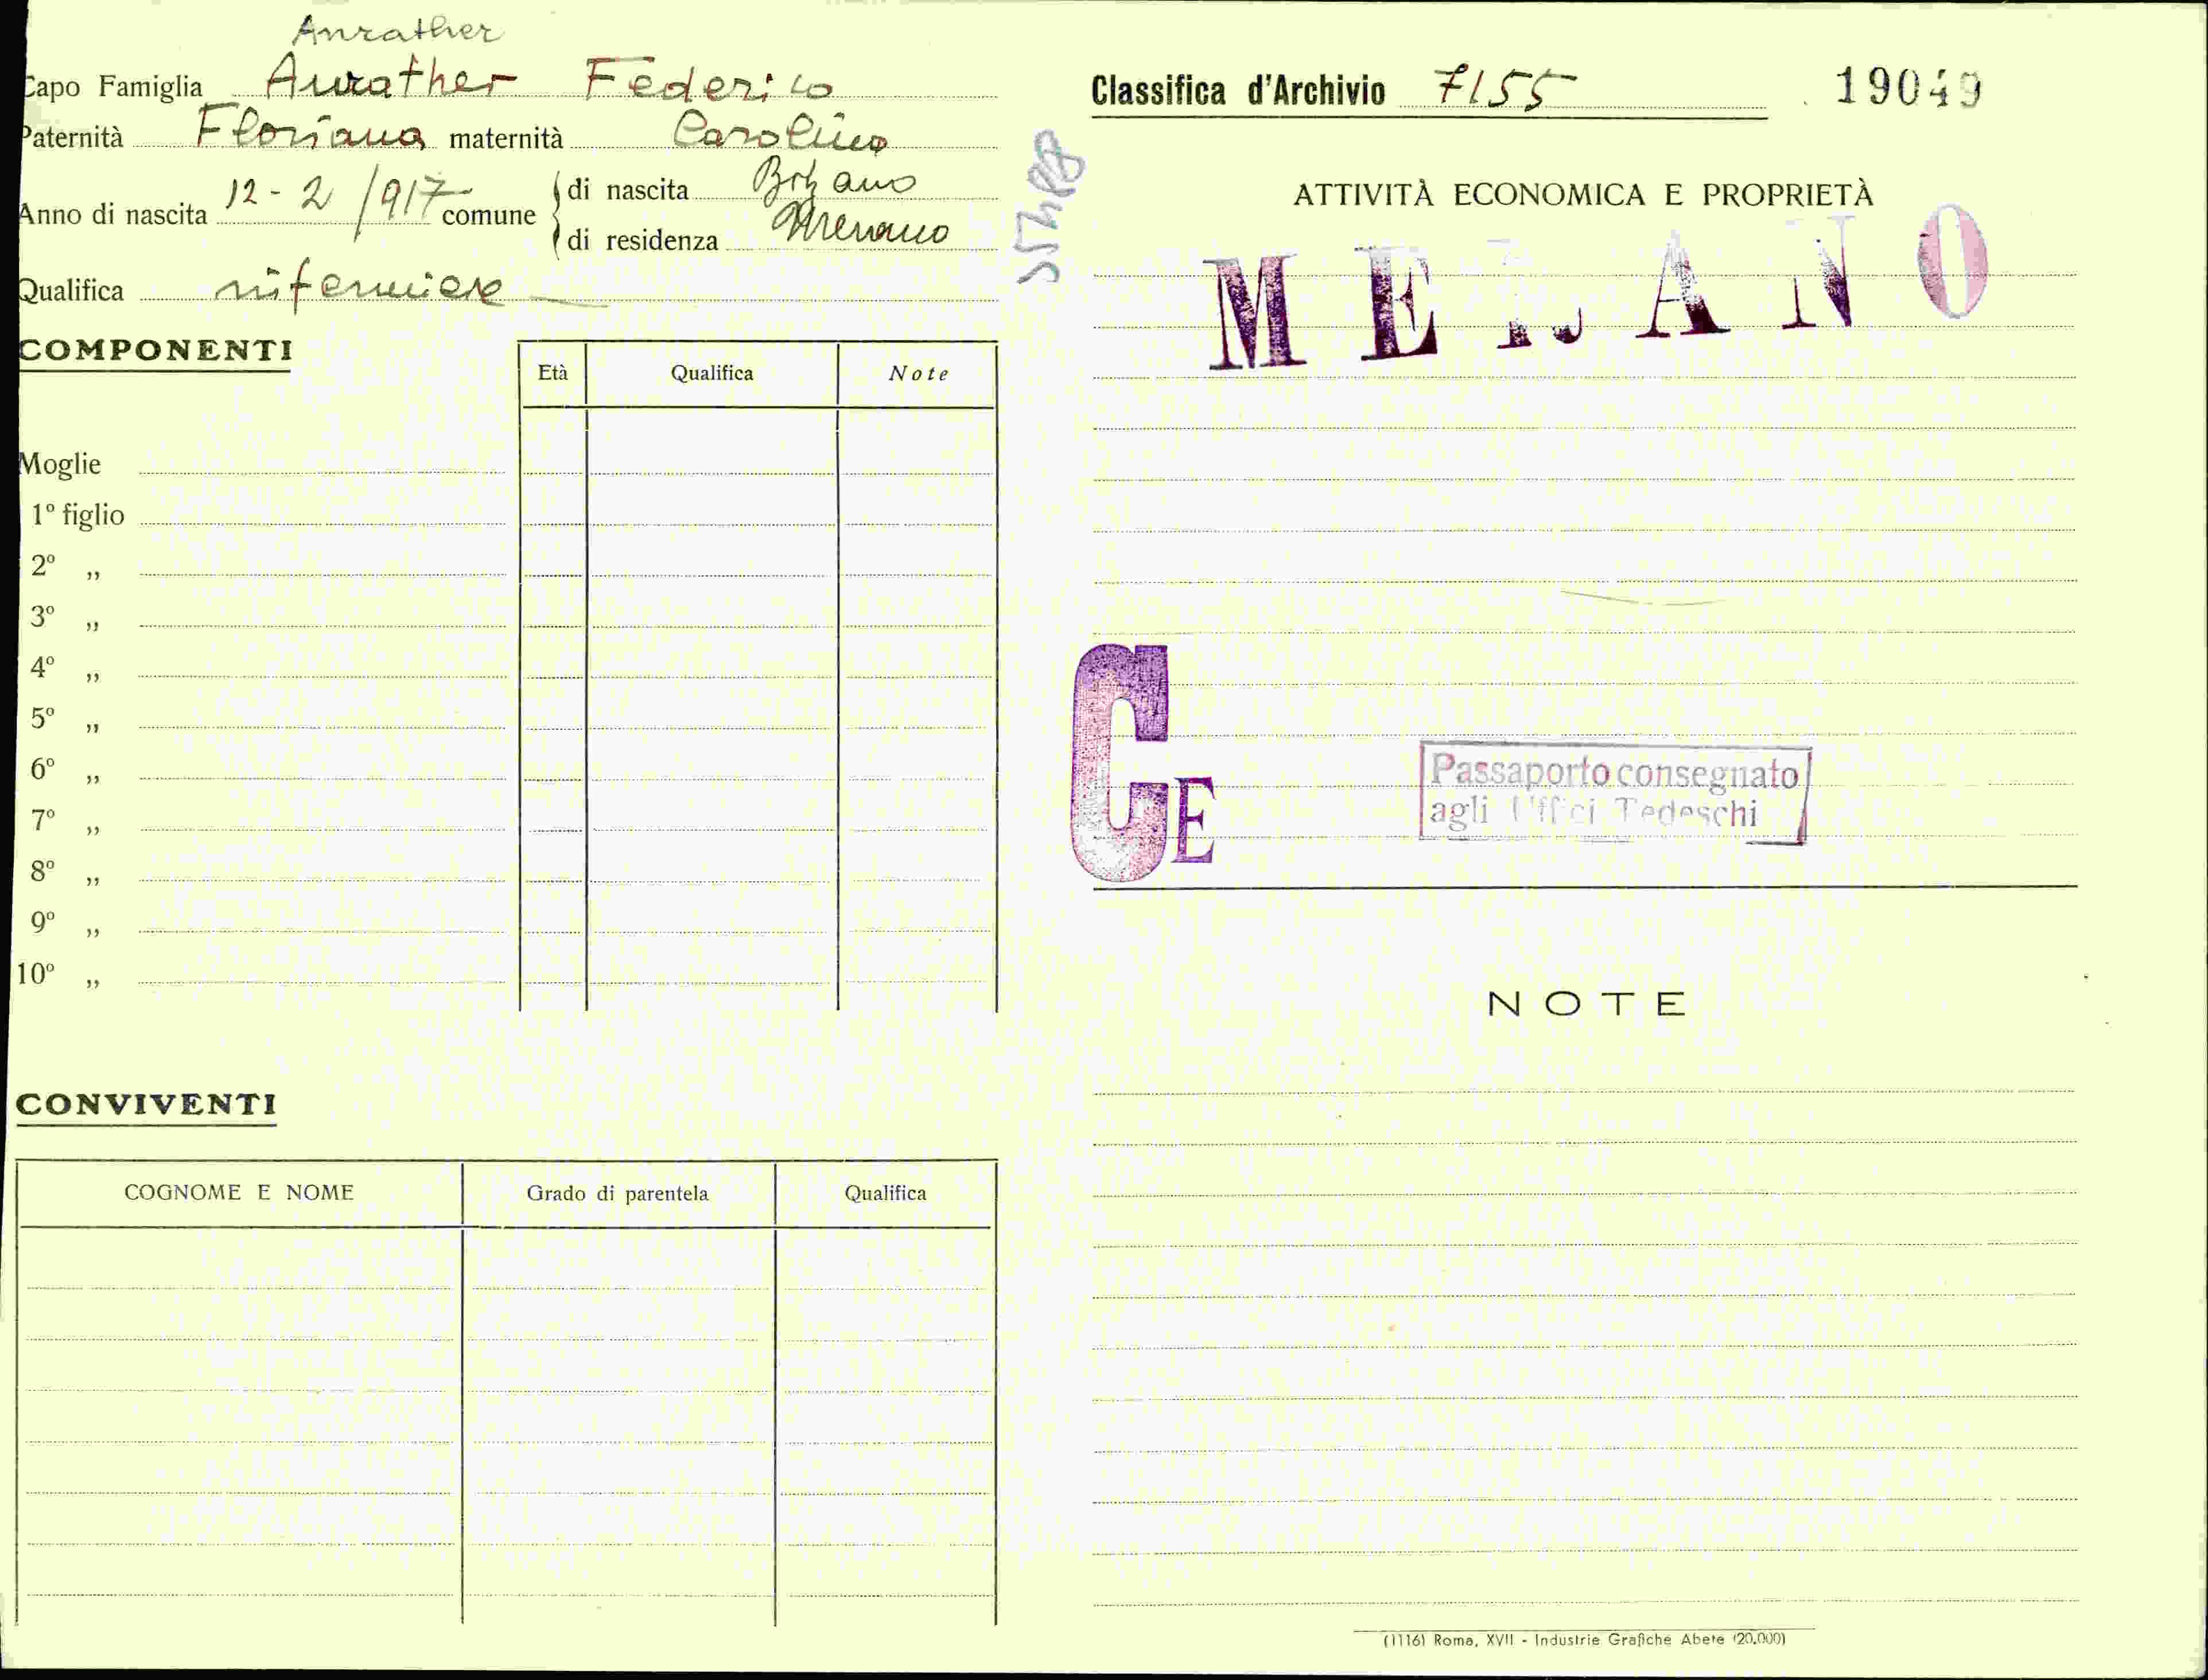 Anrather
Capo Famiglia Aurather Federico
Paternità Floriano maternità Carolina
Anno di nascita 12-2/917 comune di nascita Bolzano
di residenza Merano
Qualifica infermiere
COMPONENTI
Età Qualifica Note
Moglie
1º figlio
2º „
3º „
4º „
5º „
6º „
7º „
8º „
9º „
10º „
CONVIVENTI
COGNOME E NOME Grado di parentela Qualifica
Classifica d'Archivio 7155 19049
ATTIVITÀ ECONOMICA E PROPRIETÀ
MERANO
CE
Passaporto consegnato
agli Uffici Tedeschi
NOTE
(1116) Roma, XVII - Industrie Grafiche Abete (20.000)